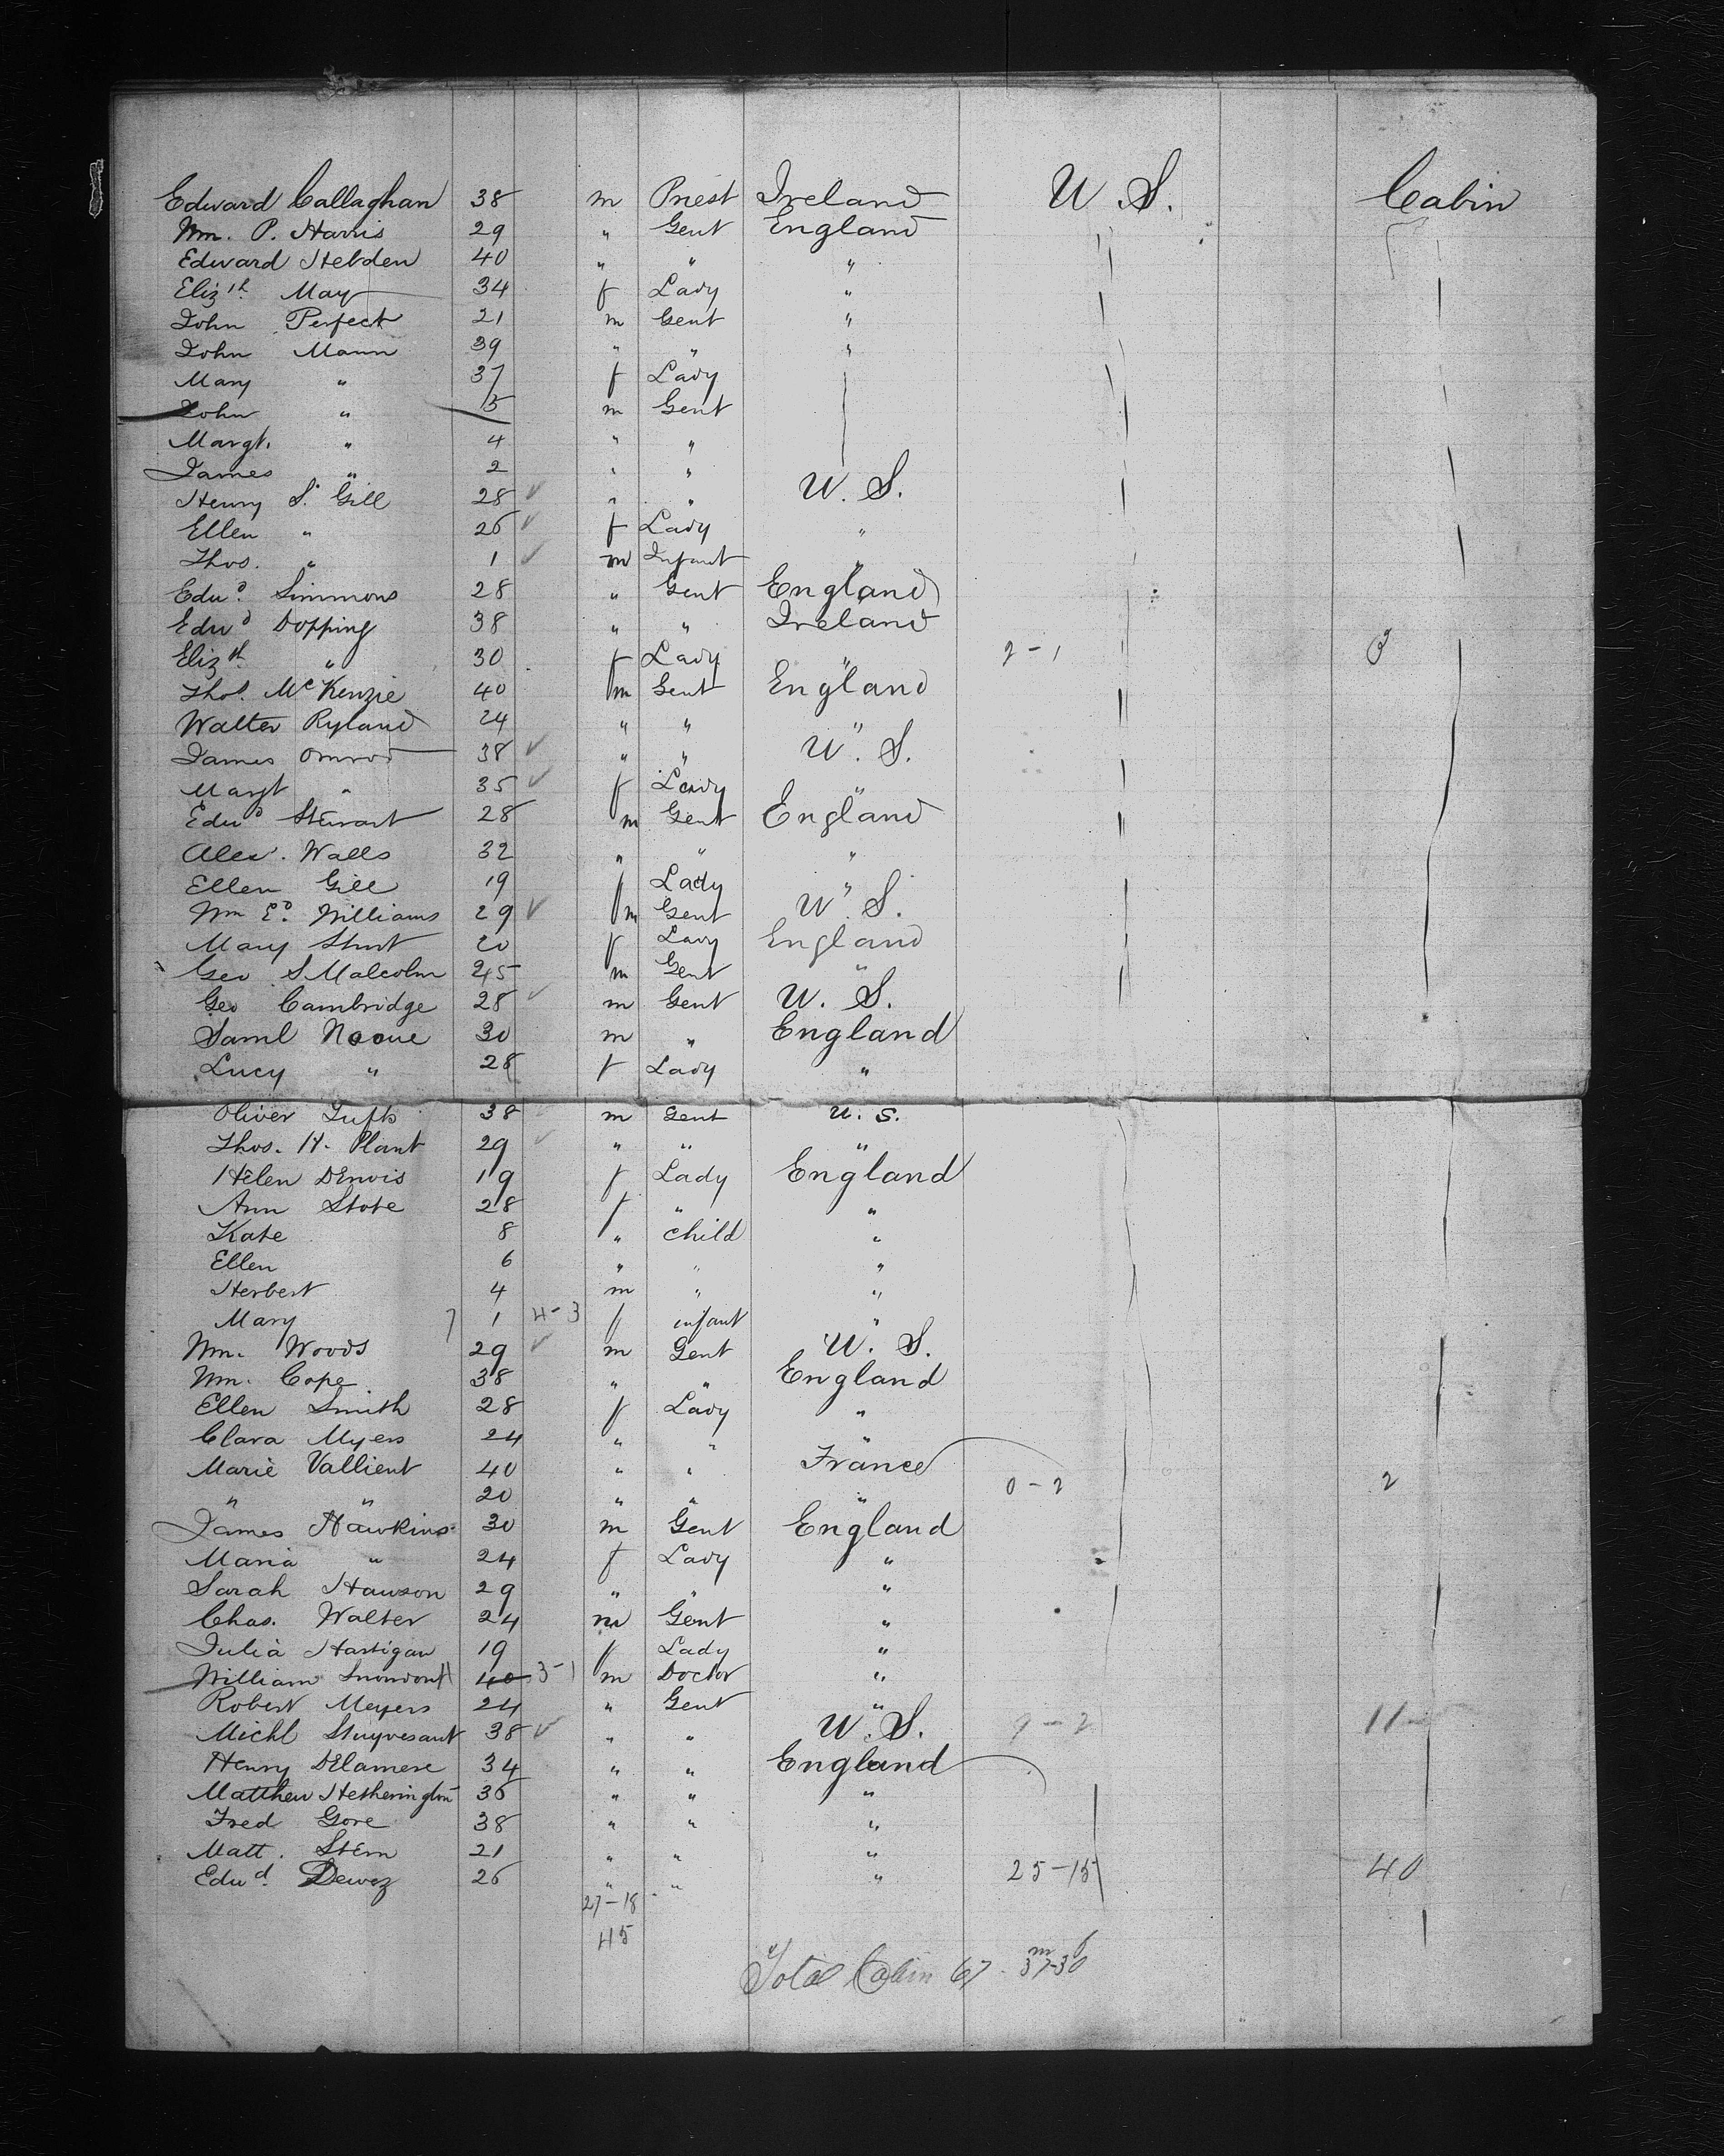 Edward Callaghan 38 m Priest Ireland U. S. Cabin
Wm. P. Harris 29 " Gent England " "
Edward Hebden 40 " " "
Elizth May 34 f Lady "
John Perfect 21 m Gent "
John Mann 39 " " "
Mary " 37 f Lady
John " 5 m Gent
Margt. " 4 " "
James " 2 " "
Henry S. Gill 28 ✓ " " U. S.
Ellen " 26 ✓ f Lady "
Thos. " 1 ✓ m Infant "
Edwd. Simmons 28 " Gent England
Edwd Dopping 38 " " Ireland
Elizth " 30 f Lady " 2-1 3
Thos. McKenzie 40 m Gent England
Walter Ryland 24 " " "
James Omrod 38 ✓ " " U. S.
Margt " 35 ✓ f Lady "
Edwd Stewart 28 m Gent England
Alex. Walls 32 " " "
Ellen Gill 19 f Lady "
Wm Ed. Williams 29 ✓ m Gent U. S.
Mary Shut 20 f Lady England
Geo S Malcolm 45 m Gent "
Geo Cambridge 28 ✓ m Gent U. S.
Saml Noone 30 m " England
Lucy " 28 f Lady "
Oliver Tufts 38 ✓ m Gent U. S.
Thos. H. Plant 29 ✓ " " "
Helen DEnvis 19 f Lady England
Ann Stote 28 f " "
Kate 8 " child "
Ellen 6 " " "
Herbert 4 m " "
Mary 1 4-3 f infant "
Wm. Woods 29 ✓ m Gent U. S.
Wm. Cope 38 " " England
Ellen Smith 28 f Lady "
Clara Myers 24 " " "
Marie Vallient 40 " " France
" " 20 " " " 0-2 2
James Hawkins 30 m Gent England
Maria " 24 f Lady "
Sarah Hawson 29 " " "
Chas. Walter 24 m Gent "
Julia Hartigan 19 f Lady "
William 40 3-1 m Doctor "
Robert Meyers 24 " Gent "
Michl Stuyvesant 38 ✓ " " U. S. 9-2 11
Henry DElamere 34 " " England
Matthew Hetherington 36 " " "
Fred Gore 38 " " "
Matt. Stern 21 " " "
Edwd. Dewez 26 " " " 25-15 40
27-18
45
Total Cabin 67 m f 37-30